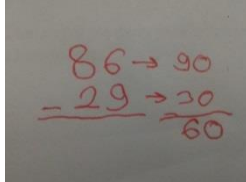 86 → 90
- 29 → 30
60